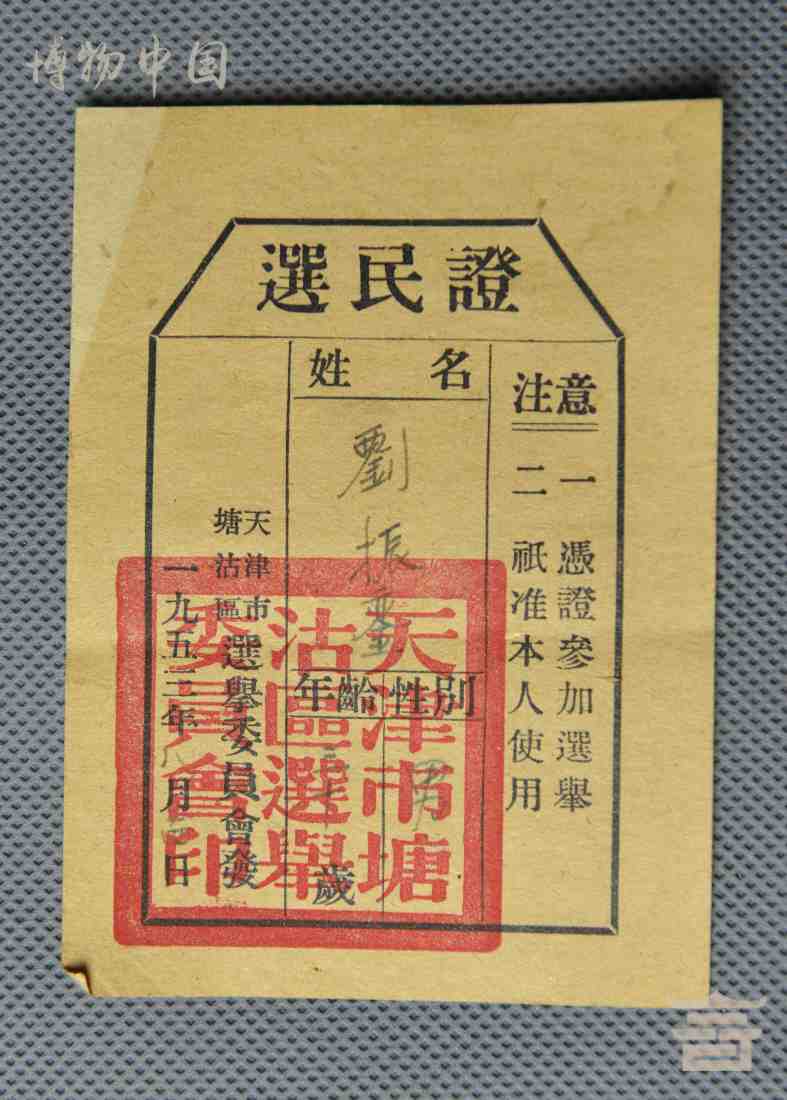 博物中国
選民證
注意
一 憑證參加選舉
二 祇准本人使用
姓名
劉振
性別
男
年齡
歲
天津市
塘沽區
選舉委員會發
一九五三年八月日
天津市塘
沽區選舉
委員會印